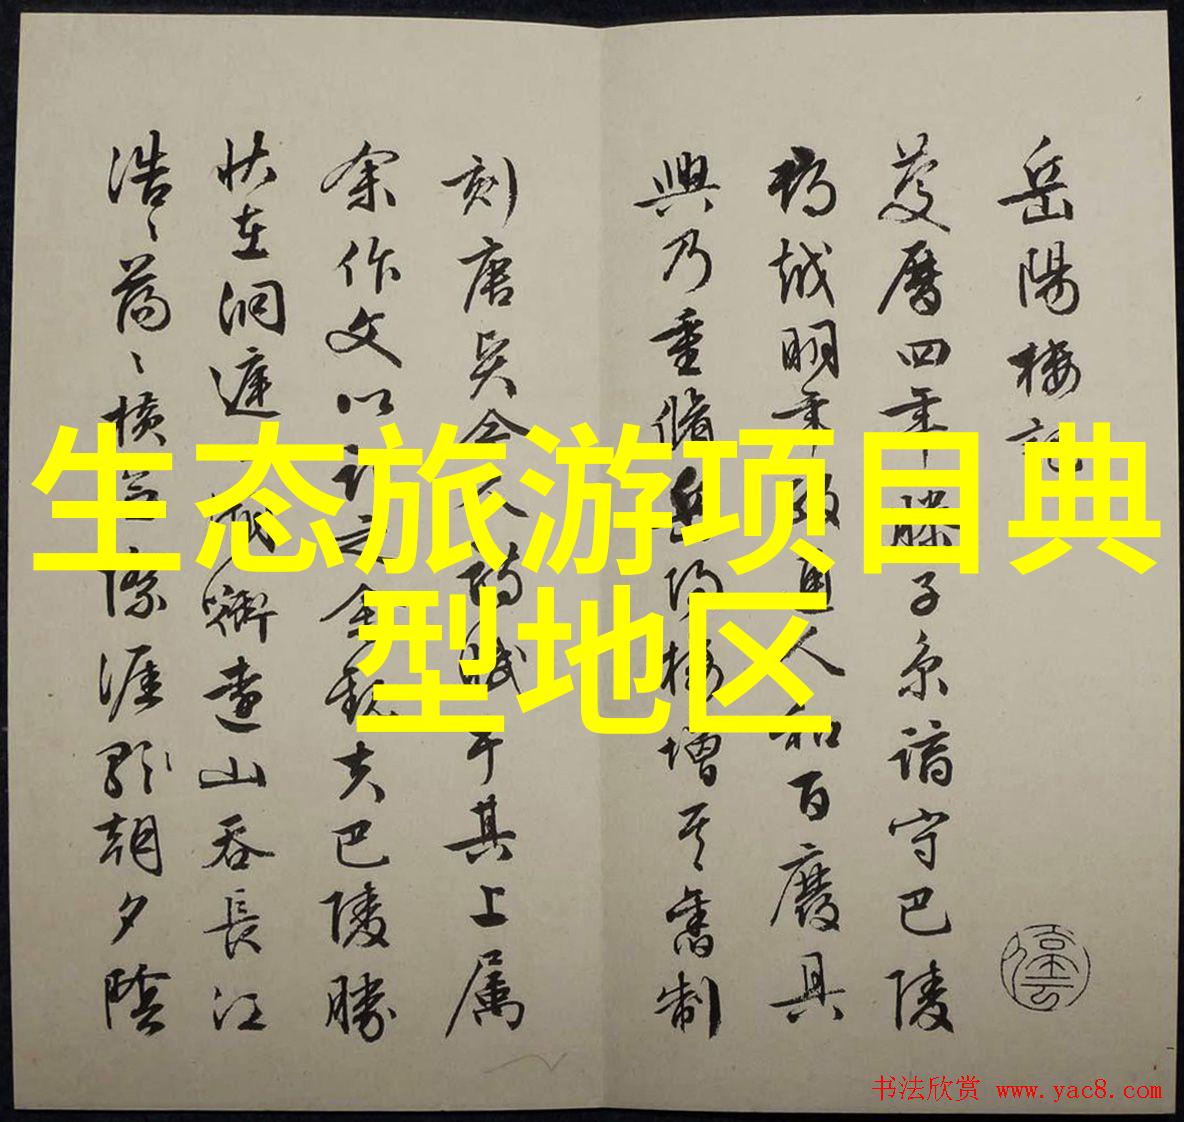 生态旅游项目典
型地区
岳陽樓記
慶曆四年滕子京謫守巴陵
郡越明年政通人和百廢具
興乃重脩岳陽樓增其舊制
刻唐賢今人詩賦于其上属
余作文以記之余觀夫巴陵勝
状在洞庭一湖銜遠山吞長江
浩〻蕩〻橫無際涯朝夕陰
书法欣赏 www.yac8.com